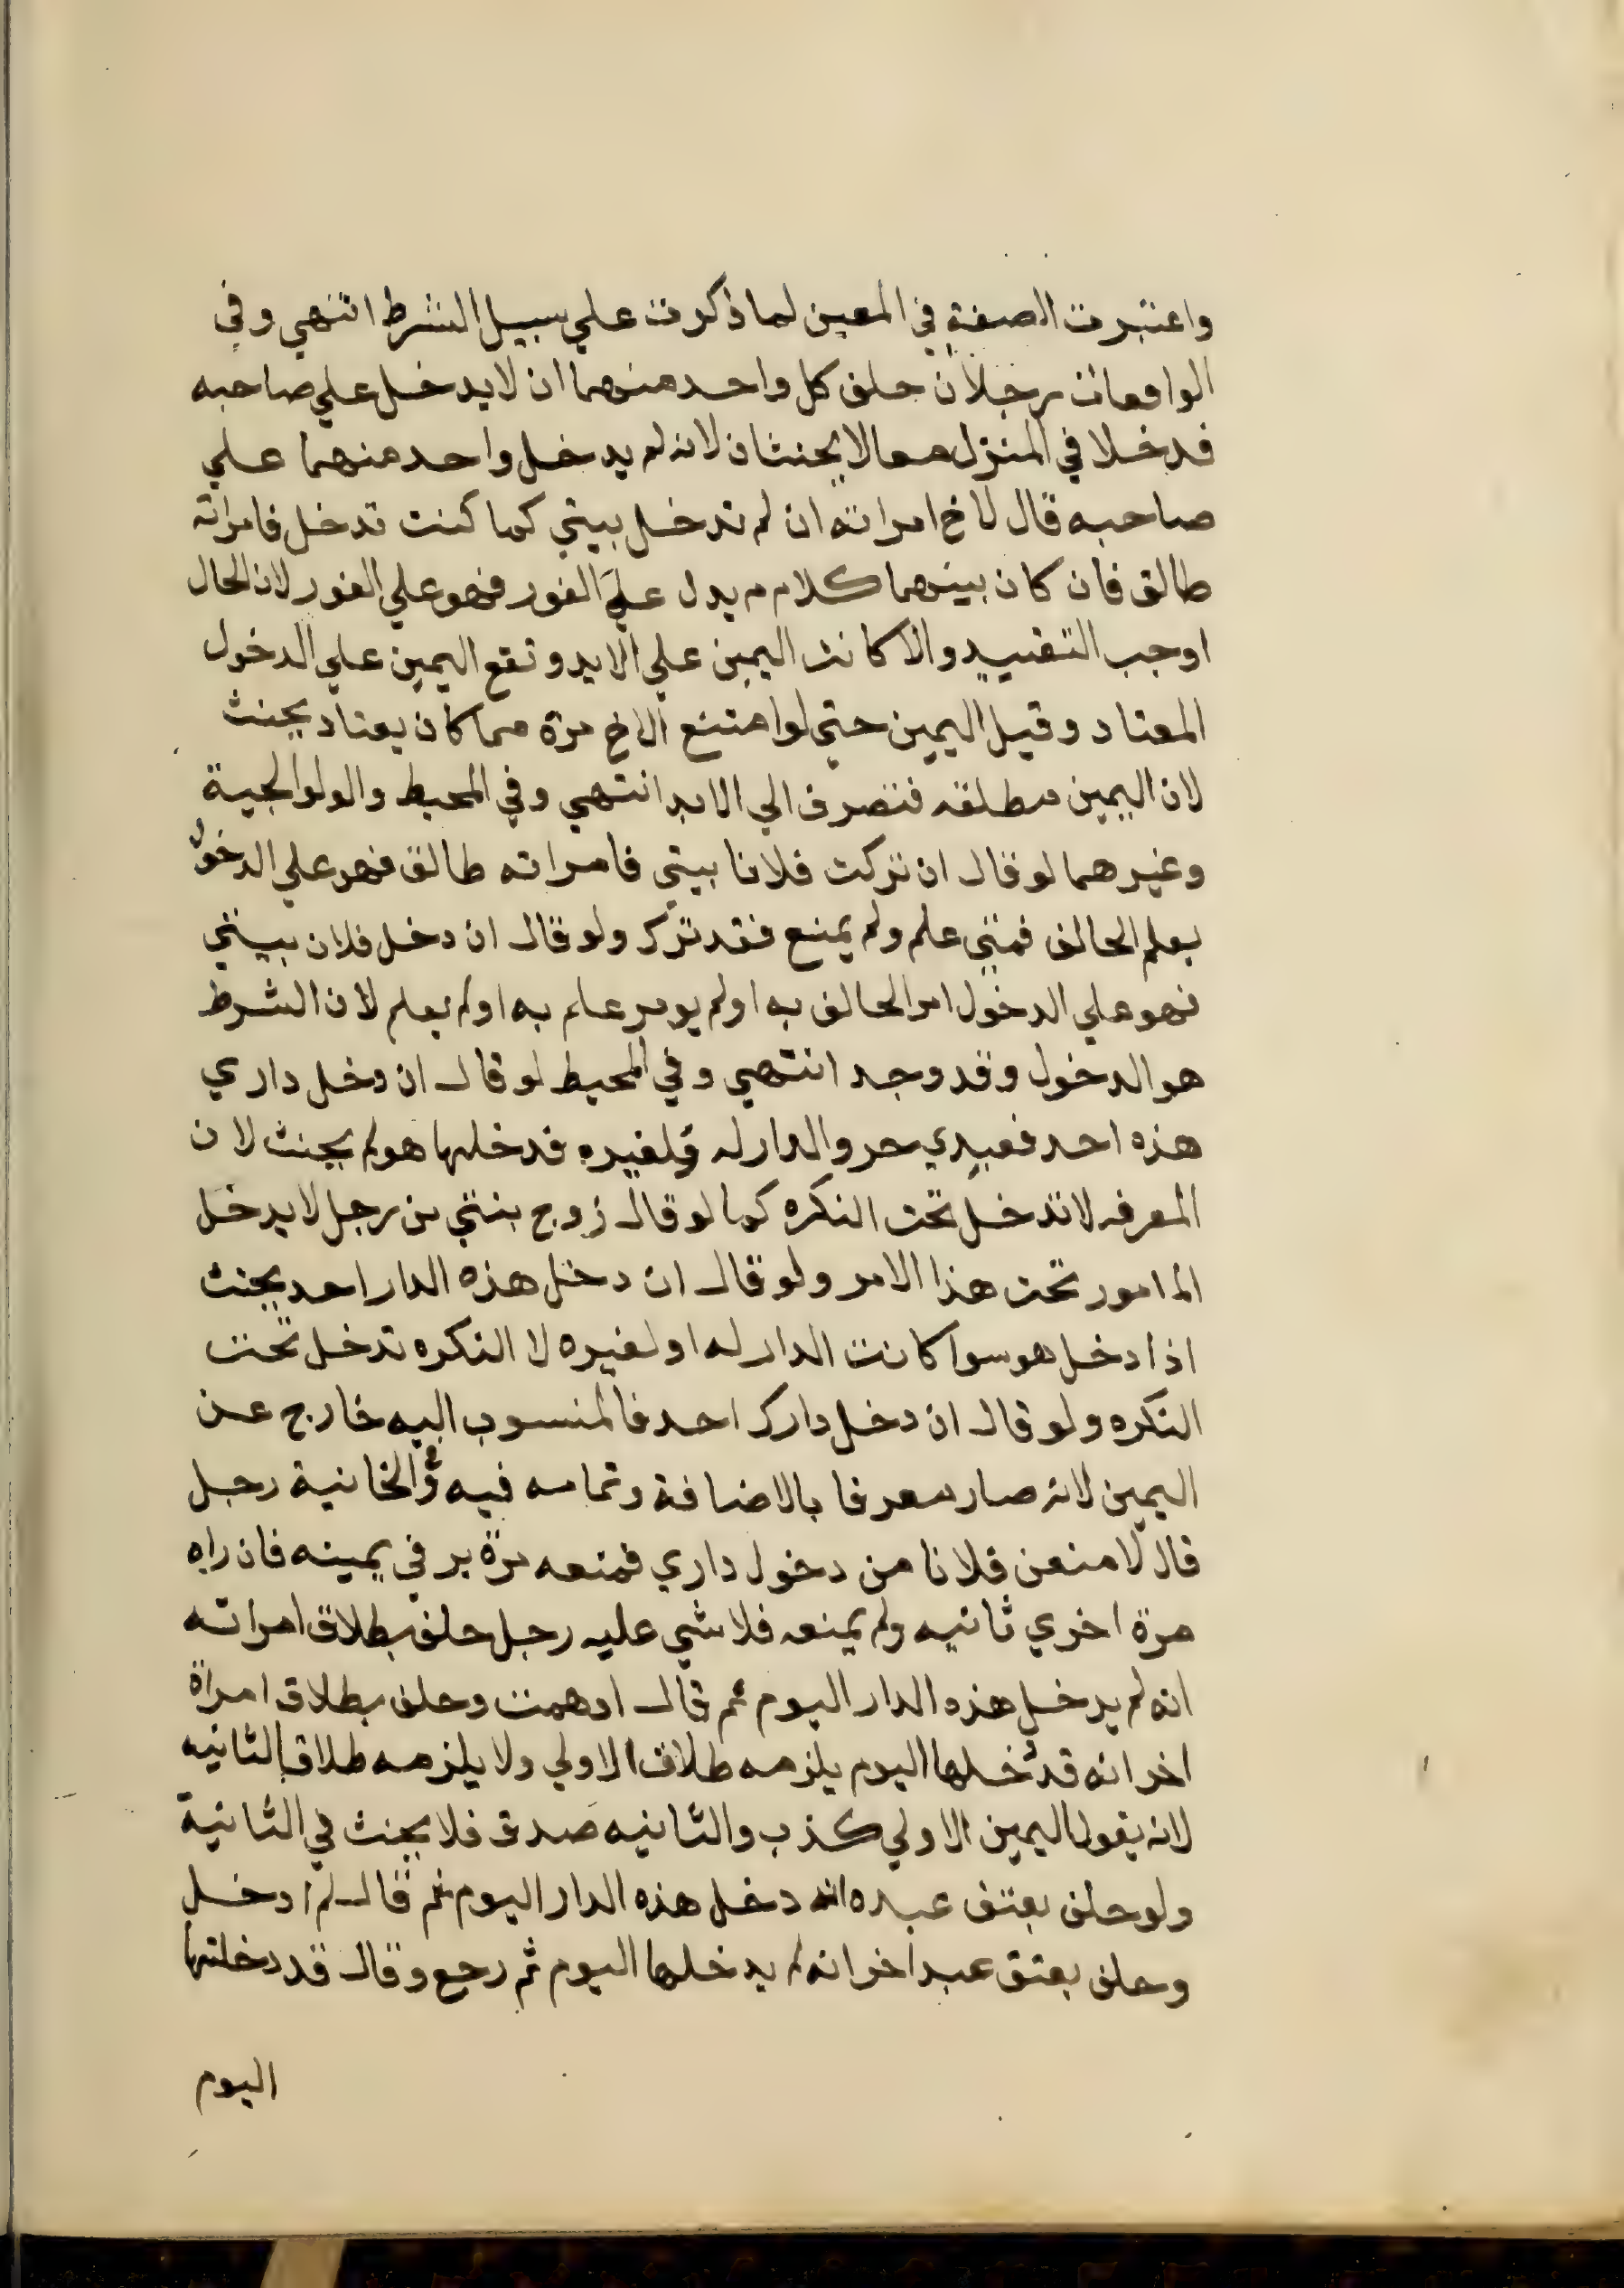 واعتبرت الصفة في المعين لما ذكرت علي سبيل الشرط انتهي وفي
الواقعات رجلان حلف كل واحد منهما ان لا يدخل علي صاحبه
فدخلا في المنزل معا لا يحنثان لانه لم يدخل واحد منهما علي
صاحبه قال لاخ امراته ان لم تدخل بيتي كما كنت تدخل فامراته
طالق فان كان بينهما كلام يدل علي الفور فهو علي الفور لان الحال
اوجب التقييد والا كانت اليمين علي الابد وتقع اليمين علي الدخول
المعتاد وقيل اليمين حتي لو امتنع الاخ مرة مما كان يعتاد يحنث
لان اليمين مطلقه فتصرف الي الابد انتهي وفي المحيط والولوالجية
وغيرهما لو قال ان تركت فلانا بيتي فامراته طالق فهو علي الدخول
بعلم الحالف فمتي علم ولم يمنع فقد ترك ولو قال ان دخل فلان بيتي
فهو علي الدخول امر الحالف به اولم يومر علم به اولم يعلم لان الشرط
هو الدخول وقد وجد انتهي وفي المحيط لو قال ان دخل داري
هذه احد فعبدي حر والدار له ولغيره فدخلها هو لم يحنث لان
المعرفه لا تدخل تحت النكره كما لو قال زوج بنتي من رجل لا يدخل
المامور تحت هذا الامر ولو قال ان دخل هذه الدار احد يحنث
اذا دخل هو سوا كانت الدار له او لغيره لا النكره تدخل تحت
النكره ولو قال ان دخل دارك احد فالمنسوب اليه خارج عن
اليمين لانه صار معرفا بالاضافة وتمامه فيه وفي الخانية رجل
قال لامنعن فلانا من دخول داري فمنعه مرة بر في يمينه فان راه
مرة اخري ثانيه ولم يمنعه فلا شي عليه رجل حلف بطلاق امراته
انه لم يدخل هذه الدار اليوم ثم قال اوهمت وحلف بطلاق امراة
اخر انه قد دخلها اليوم يلزمه طلاق الاولي ولا يلزمه طلاق الثانيه
لانه يقول اليمين الاولي كذب والثانيه صدق فلا يحنث في الثانية
ولو حلف بعتق عبده انه دخل هذه الدار اليوم ثم قال لم ادخل
وحلف بعتق عبد اخر انه لم يدخلها اليوم ثم رجع وقال قد دخلتها
اليوم